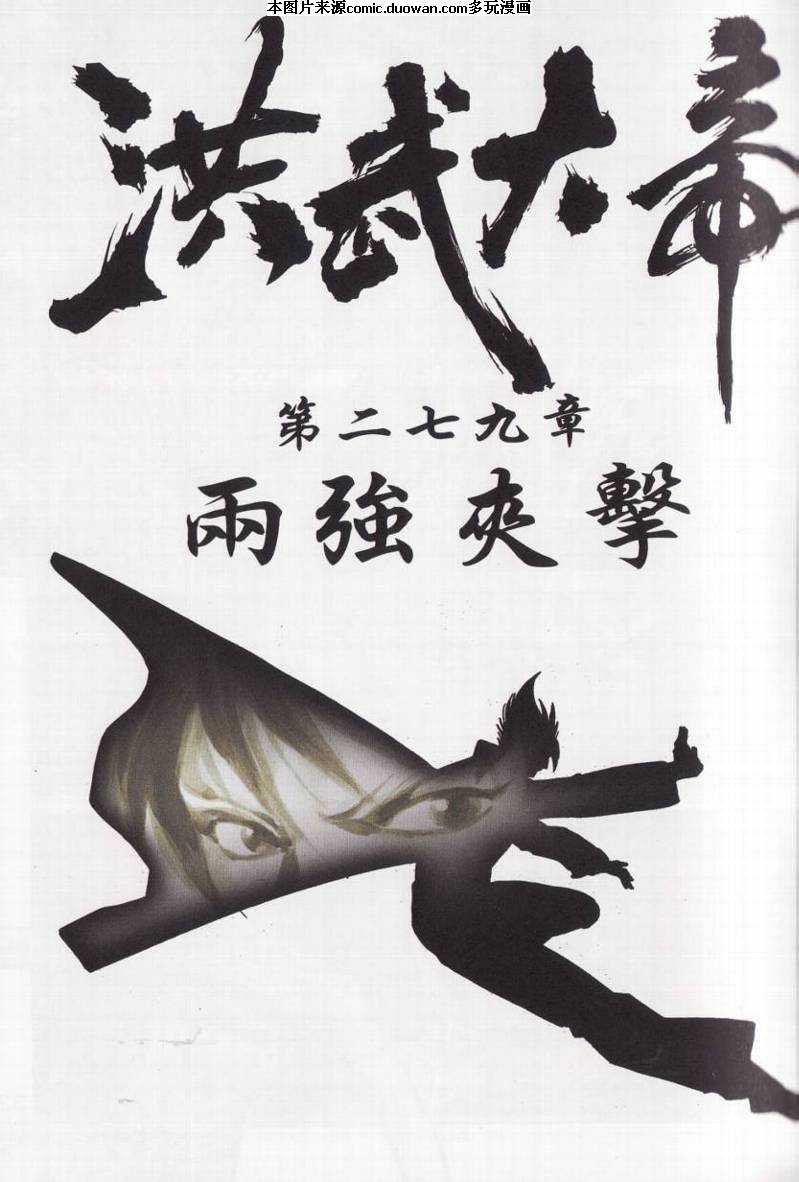 本图片来源comic.duowan.com多玩漫画
洪武大帝
第二七九章
兩強夾擊